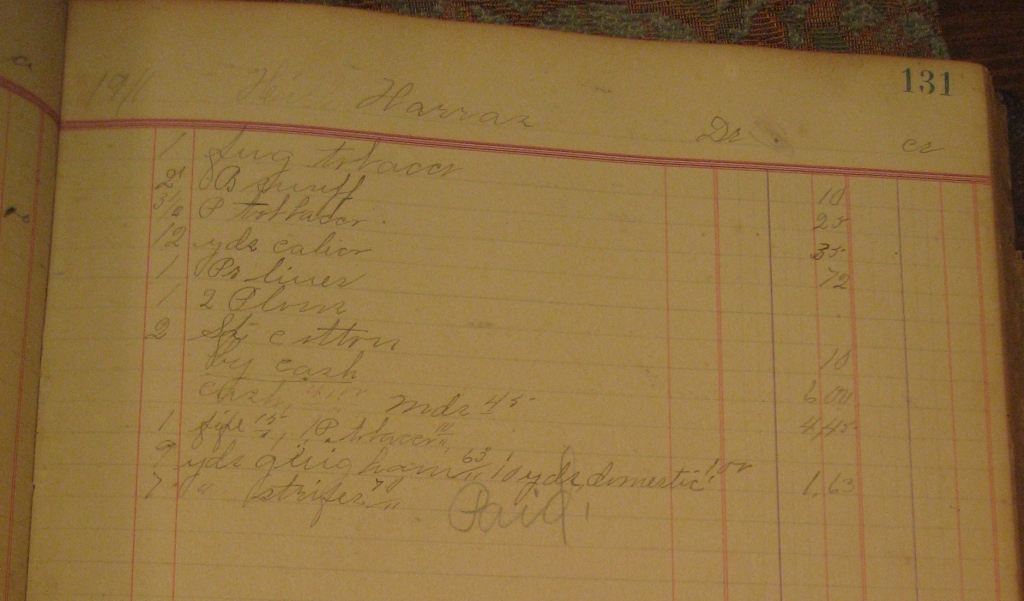 131
1911 Harras Dr cr
1 Plug tobacco 10
2 B snuff 25
P tobbacco 35
12 yds calico 72
1 Pr lines
1 2 Plows
2 cotton 10
by cash 6,00
cash mds 45 4,45
1 pipe 15, 1 P. tobacco 10
9 yds guigham 63, 10 yds domestic 1,00 1,63
7 " stripes 70
Paid